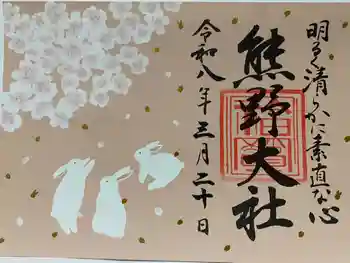 明るく清らかに素直な心
熊野大社
令和八年三月二十日